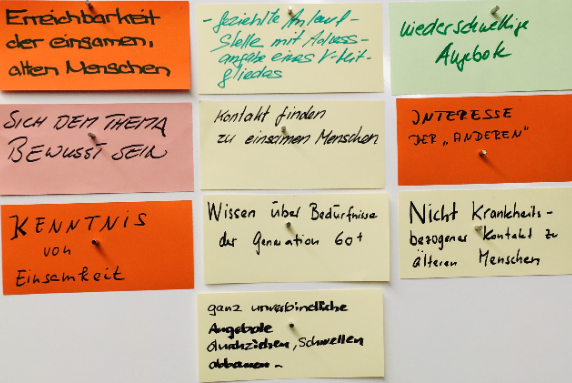 Erreichbarkeit
der einsamen,
alten Menschen
- gezielte Anlauf-
Stelle mit Adress-
angabe eines
gliedes
Niederschwellige
Angebote
SICH DEM THEMA
BEWUSST SEIN
Kontakt finden
zu einsamen Menschen
INTERESSE
DER „ANDEREN"
KENNTNIS
von
Einsamkeit
Wissen über Bedürfnisse
der Generation 60+
Nicht Krankheits-
bezogener Kontakt zu
älteren Menschen
ganz unverbindliche
Angebote
durchziehen, Schwellen
abbauen -